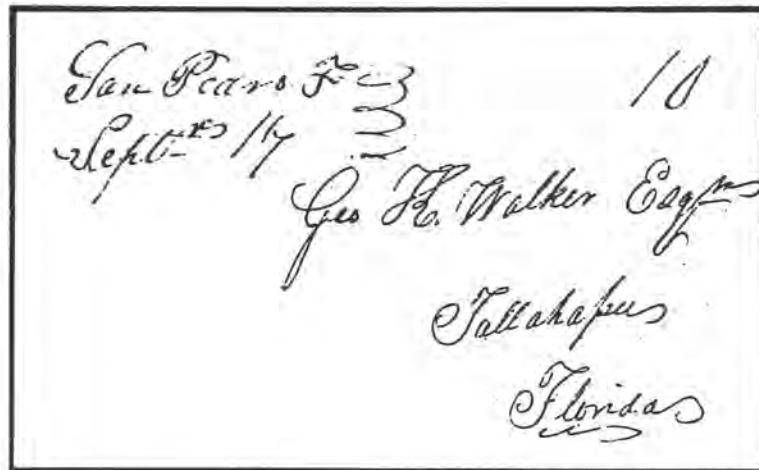 San Pedro F
10
Septr 17
Geo K. Walker Esqr
Tallahassee
Florida